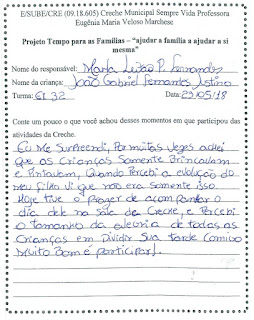 E/SUBE/CRE (09.18.605) Creche Municipal Sempre Vida Professora
Eugênia Maria Veloso Marchese
Projeto Tempo para as Famílias – "ajudar a família a ajudar a si
mesma"
Nome do responsável: Marta P. Fernandes
Nome da criança: João Gabriel Fernandes Justino
Turma: EI 32 Data: 29/05/18
Conte um pouco o que você achou desses momentos em que participou das
atividades da Creche.
Eu Me Surpreendi, Por muitas vezes achei
que as Crianças Somente Brincavam
e Pintavam, Quando Percebi a evolução do
meu filho Vi que não era somente isso
Hoje tive o prazer de acompanhar o
dia dele na Sala de Creche, e Percebi
o tamanho da alegria de todas as
Crianças em Dividir Sua tarde Comigo
Muito Bom é participar!